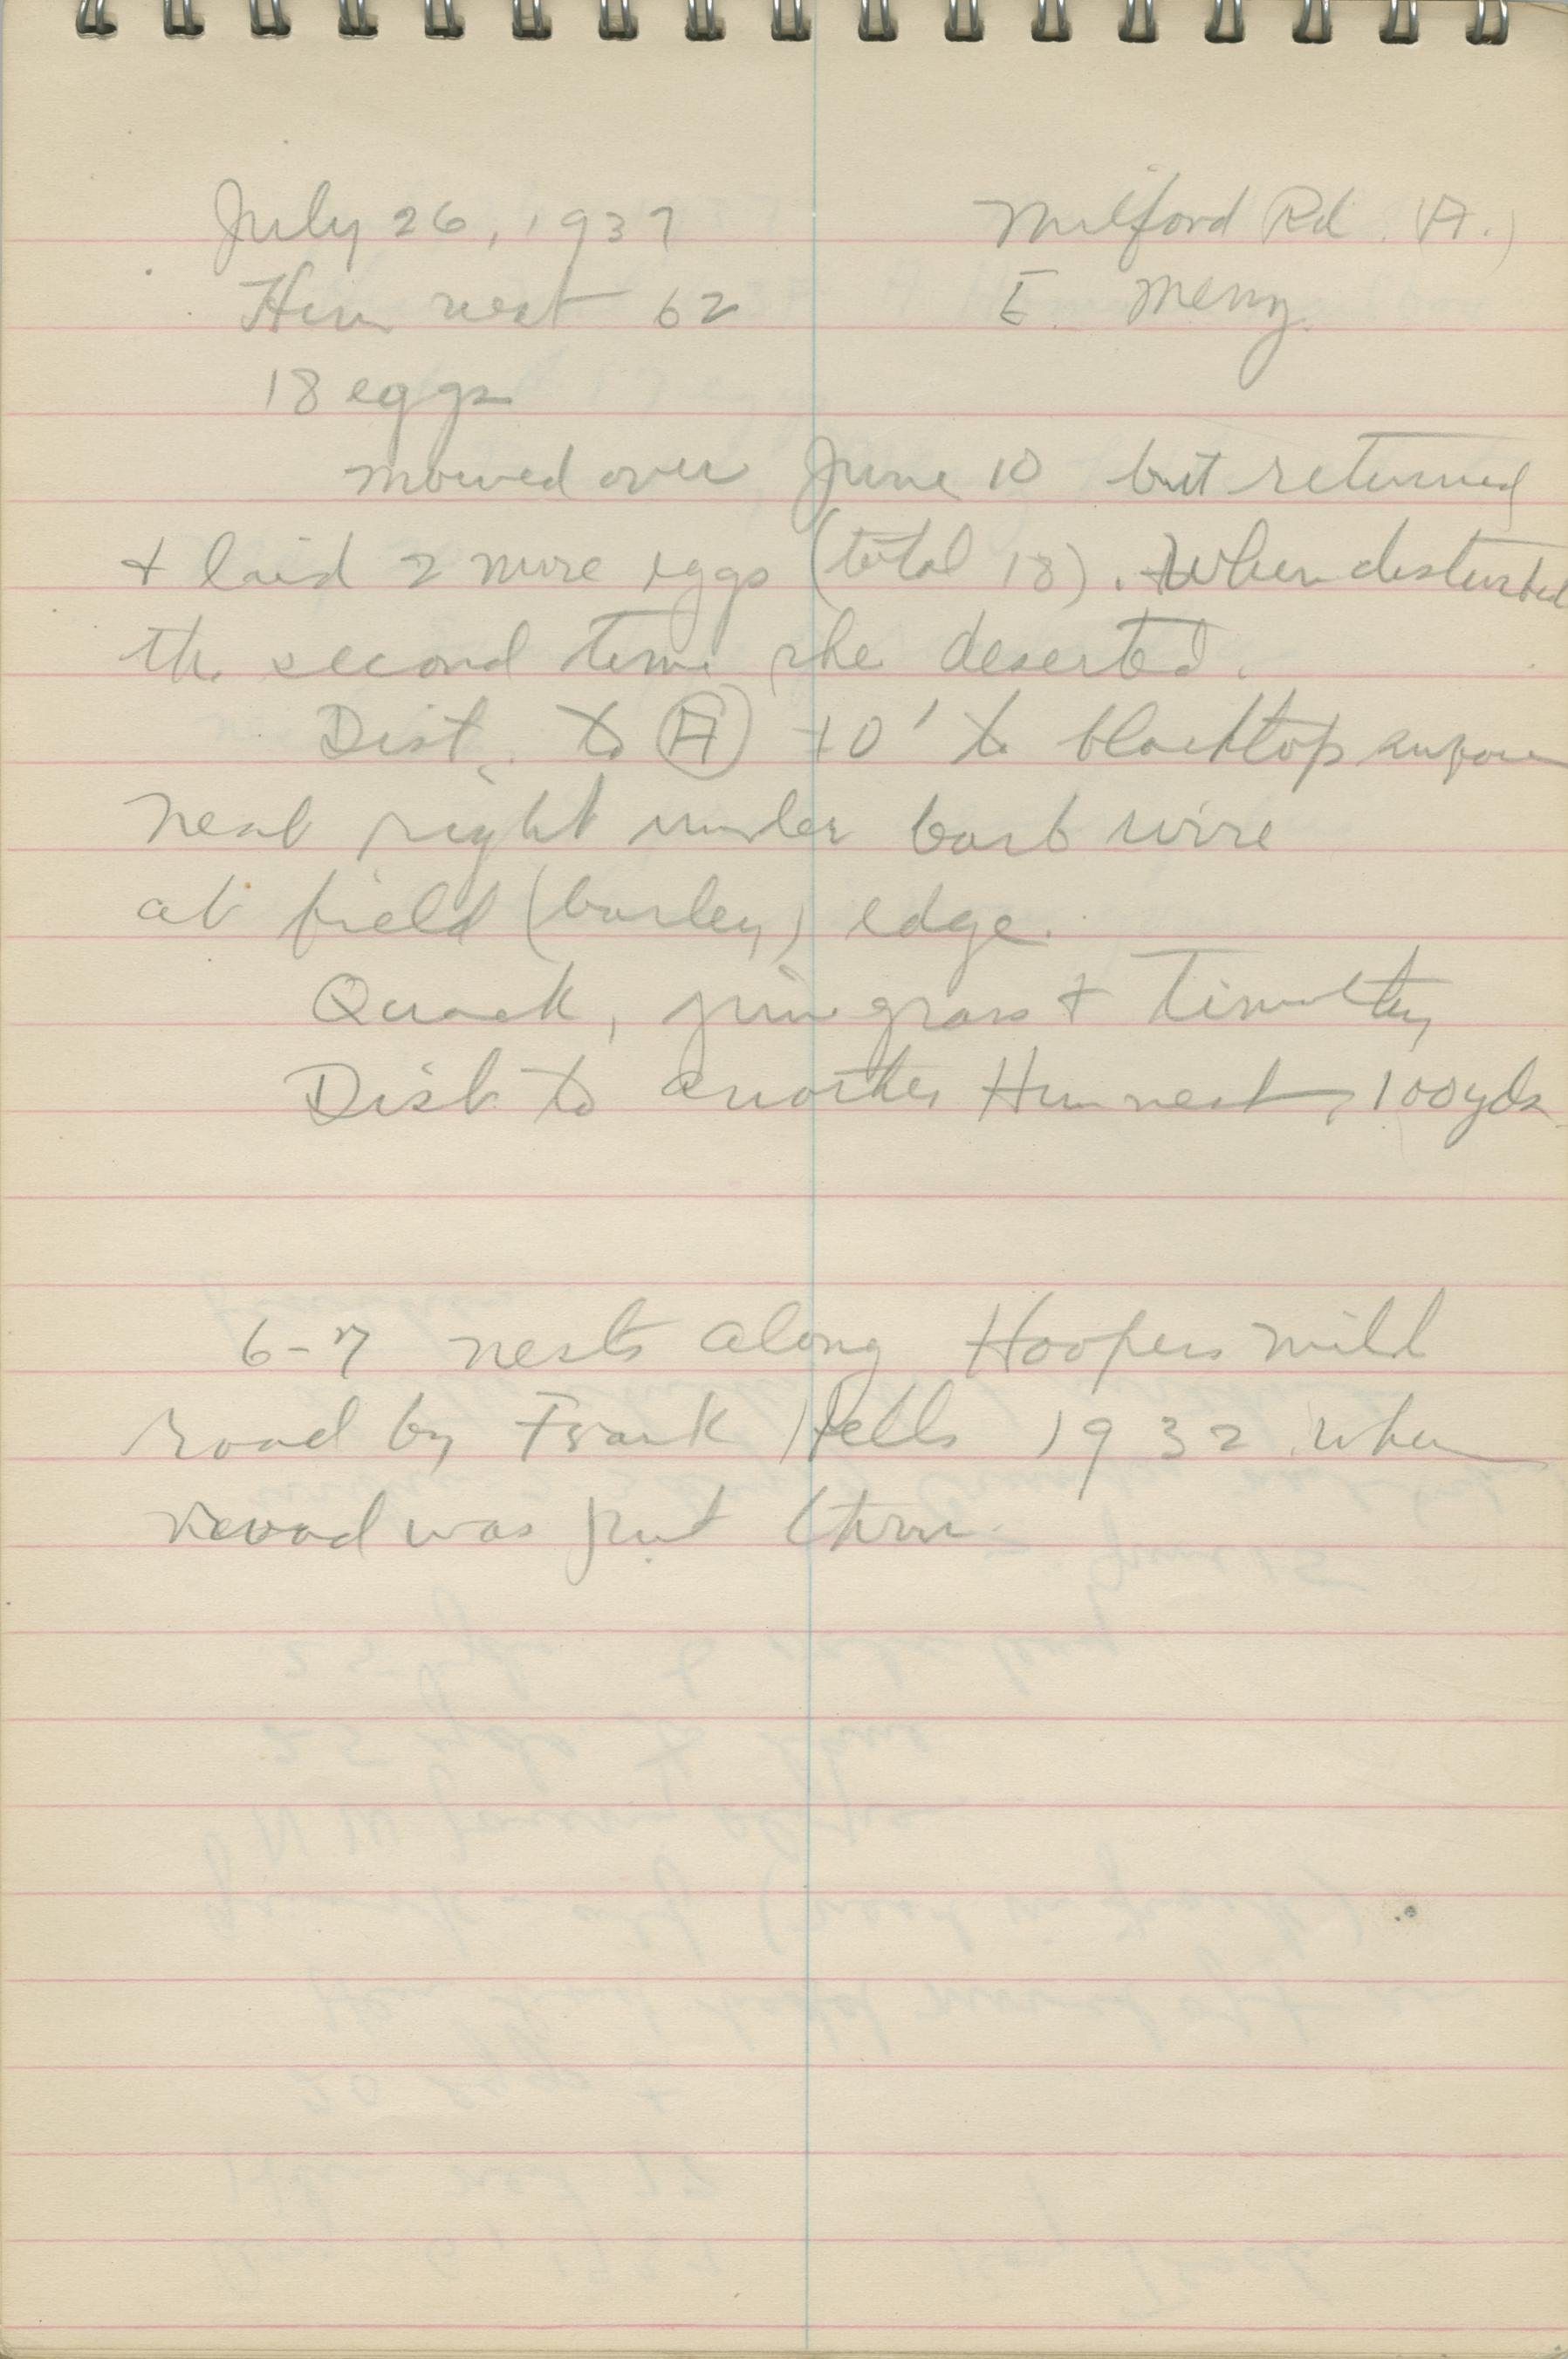 July 26, 1937 Milford Rd. (A.)
Hun nest 62 E. Merry
18 eggs
mowed over June 10 but returned
+ laid 2 more eggs (total 18). When disturbed
the second time she deserted.
Dist. to (A) 10' to blacktop
nest right under barb wire
at field (barley) edge.
Quack, june grass + Timothy
Dist to another Hun nest, 100 yds
6-7 nests along Hoopers mill
road by Frank 1932 when
was put thru.